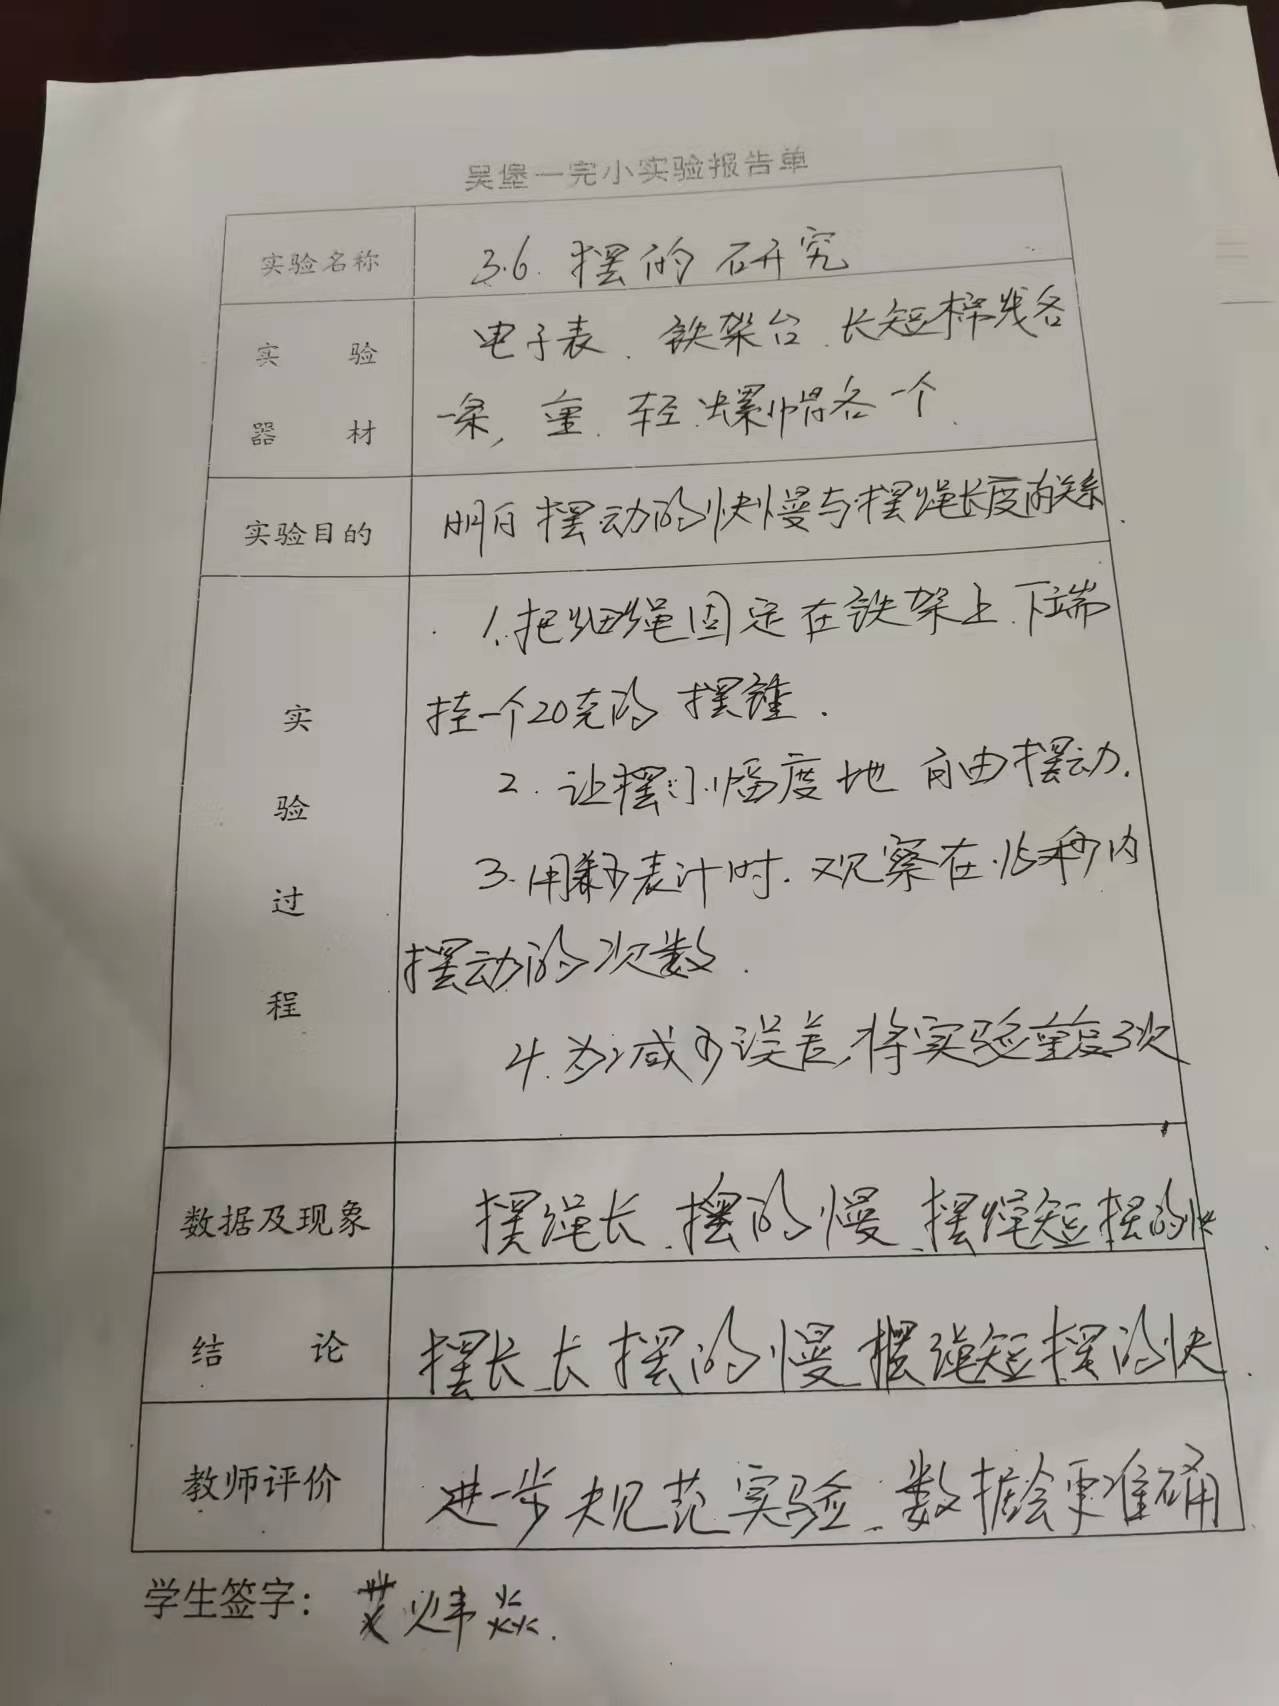 吴堡一完小实验报告单
实验名称
3.6. 摆的研究
实 验
器 材
电子表、铁架台、长短棉线各
一条，重、轻、螺帽各一个.
实验目的
明白摆动的快慢与摆绳长度的关系.
实
验
过
程
1.把细绳固定在铁架上、下端
挂一个20克的 摆锤.
2. 让摆小幅度地 自由摆动.
3.用秒表计时.观察在15秒内
摆动的次数.
4.为了减少误差,将实验重复3次
数据及现象
摆绳长、摆的慢、摆绳短摆的快
结 论
摆长长摆的慢、摆绳短摆的快.
教师评价
进一步规范实验、数据会更准确
学生签字:
艾炜焱.